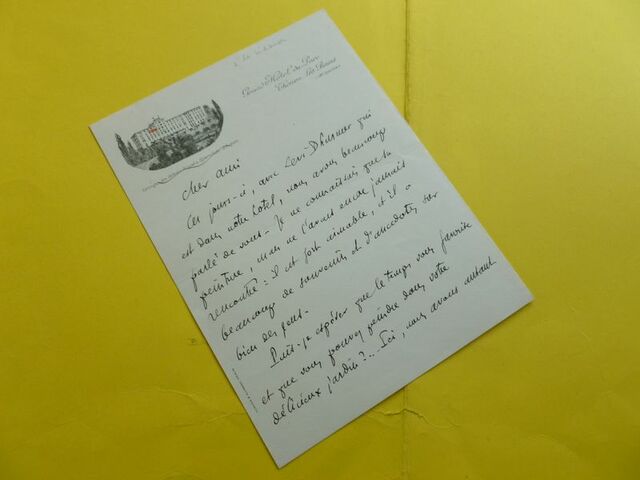 Grand Hôtel du Parc
Thonon-les-Bains
Cher ami
Ces jours-ci, avec Levi Dhurmer qui
est dans notre hotel, nous avons beaucoup
parlé de vous. Je ne connaissais que sa
peinture, mais ne l'avais encore jamais
rencontré : il est fort aimable, et il a
beaucoup de souvenirs et d'anecdotes sur
bien des gens.
Puis-je espérer que le temps vous favorise
et que vous pouvez peindre dans votre
délicieux jardin ?... Ici, nous avons autant